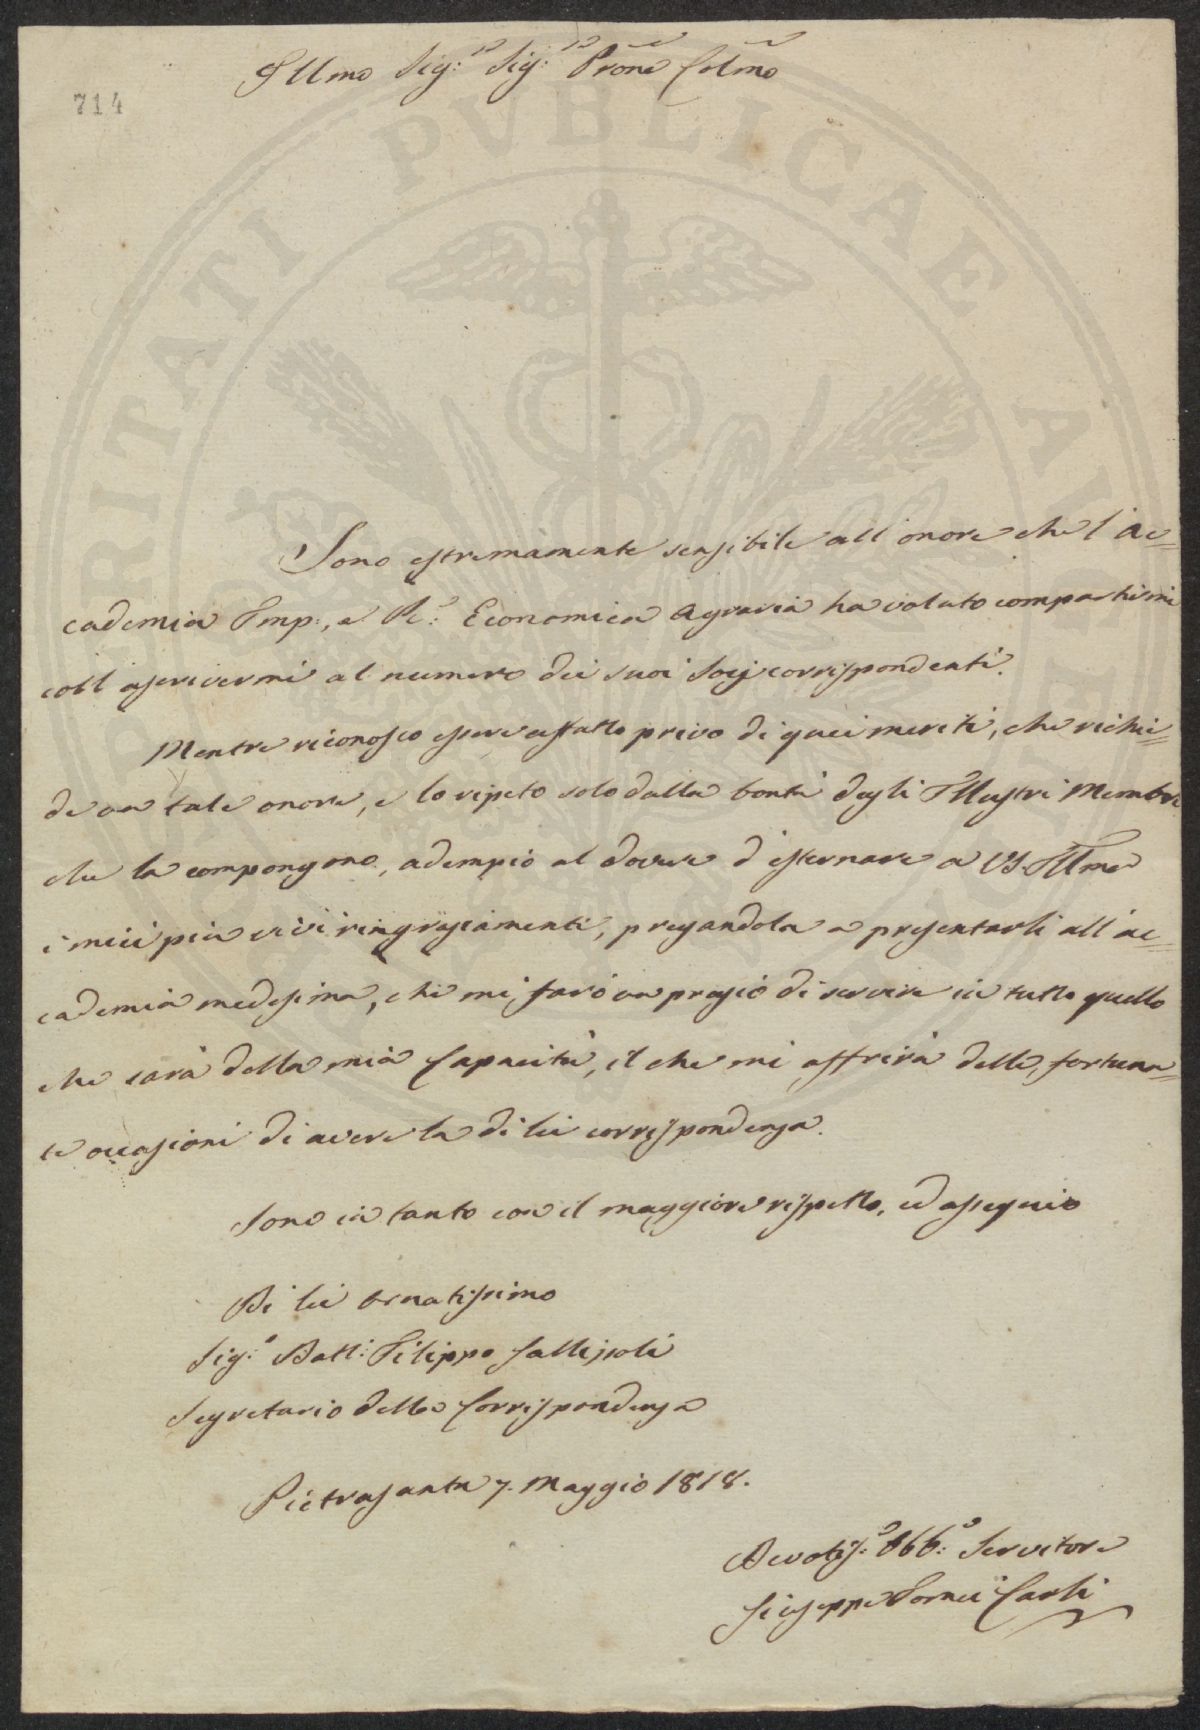 Illmo Sig:re Sig:re Prone Colmo
714
Sono estremamente sensibile all'onore che l'ac=
cademia Imp:, e R:e Economica Agraria ha voluto compartirmi
coll'ascrivermi al numero dei suoi Socj corrispondenti.
Mentre riconosco essere affatto privo di quei meriti, che richie=
de un tale onore, e lo ripeto solo dalla bontà degli Illustri Membri
che la compongono, adempio al dovere d'esternare a VS. Illma
i miei più vivi ringraziamenti, pregandola a presentarli all'ac=
cademia medesima, che mi farò un pregio di servire in tutto quello
che sarà della mia Capacità, il che mi offrirà delle fortuna=
te occasioni di avere la di lei corrispondenza.
Sono in tanto con il maggiore rispetto, ed ossequio
Di lei ornatissimo
Sig:e Dott: Filippo Gallizioli
Segretario della Corrispondenza
Pietrasanta 7. Maggio 1818.
Devotis:o Obb:o Servitore
Giuseppe Tomei Carli
PVBLICAE